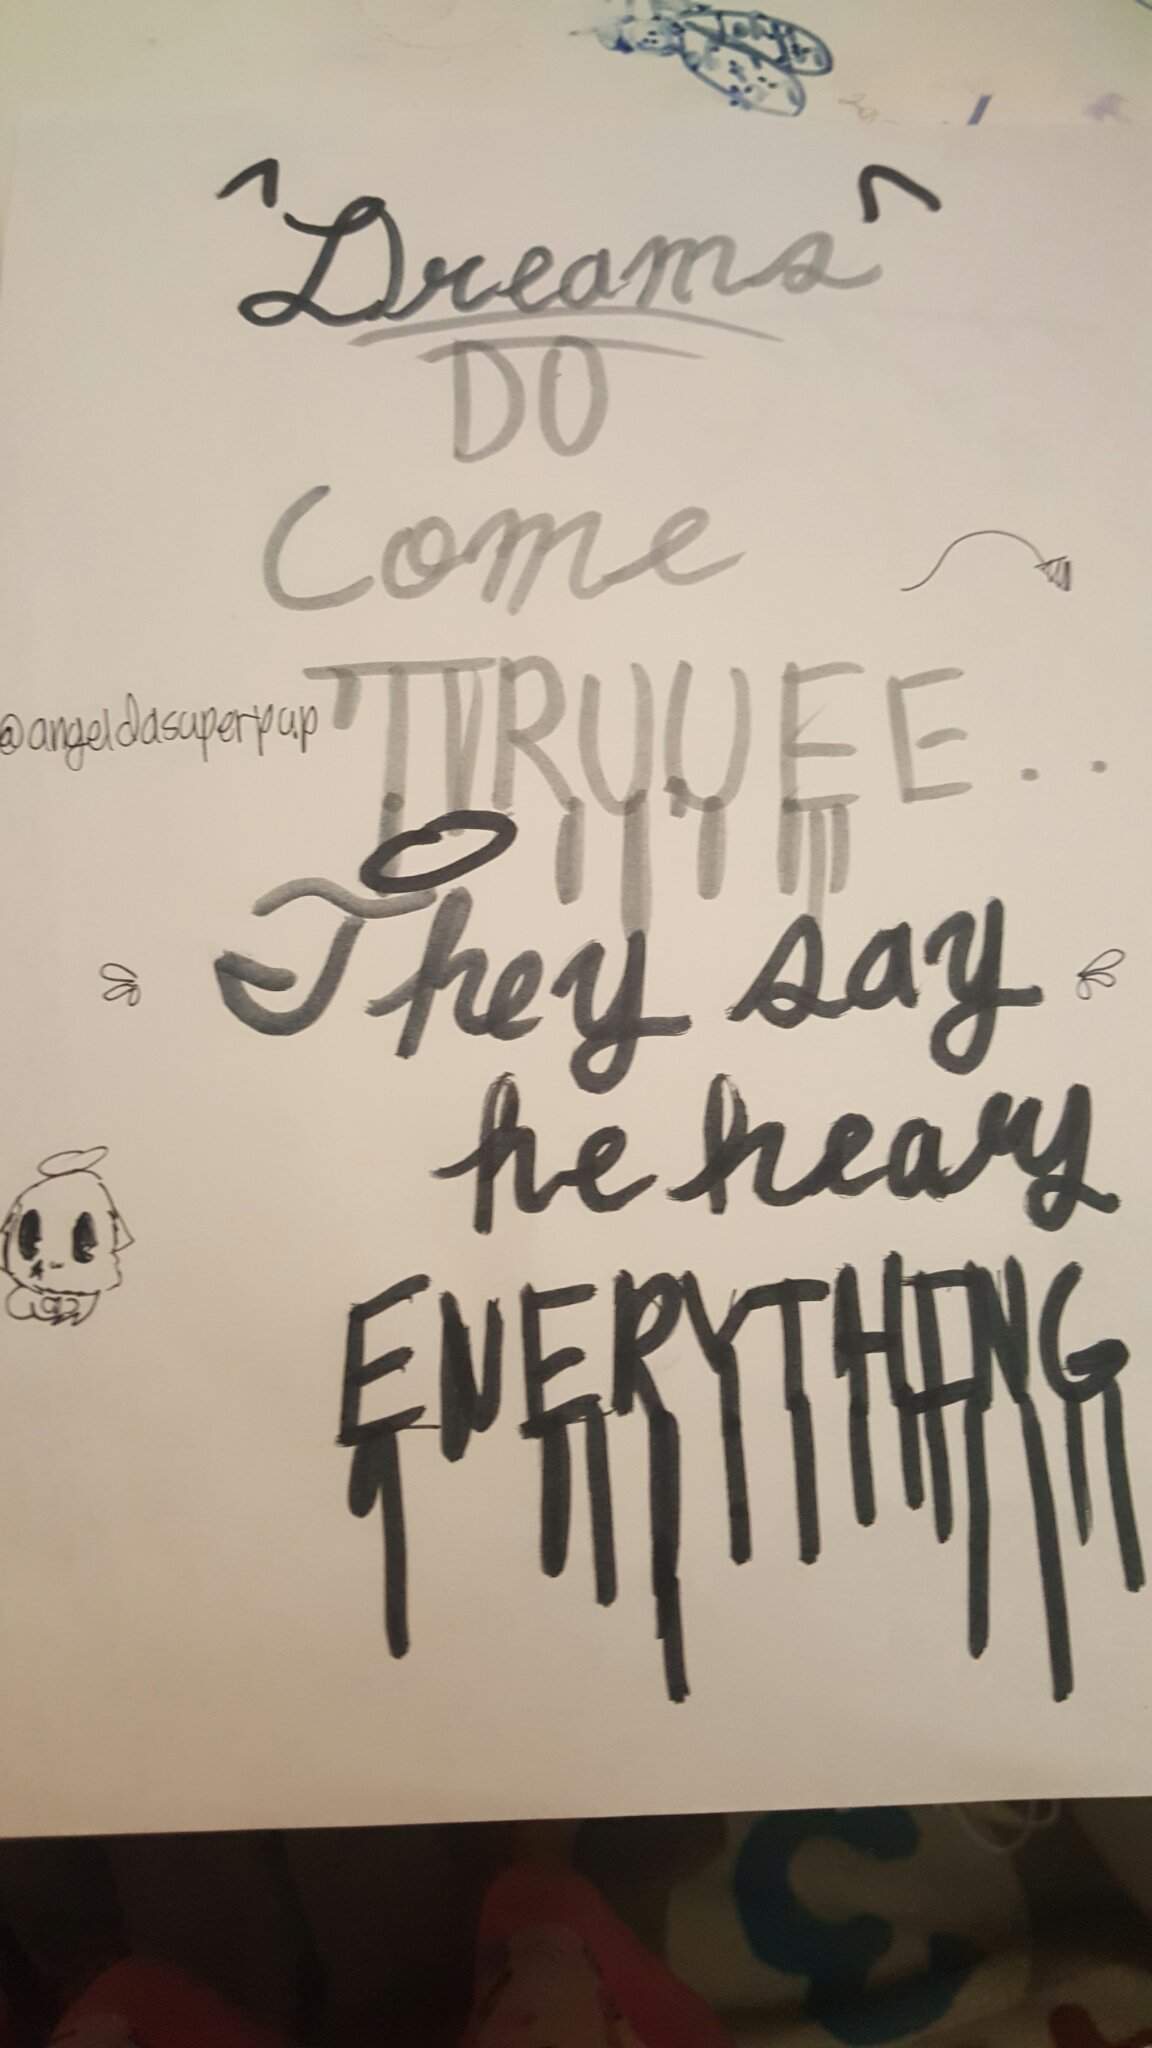 "Dreams"
DO
Come
TTRUUEE..
@angeldasuperpup
They say
he hears
EVERYTHING